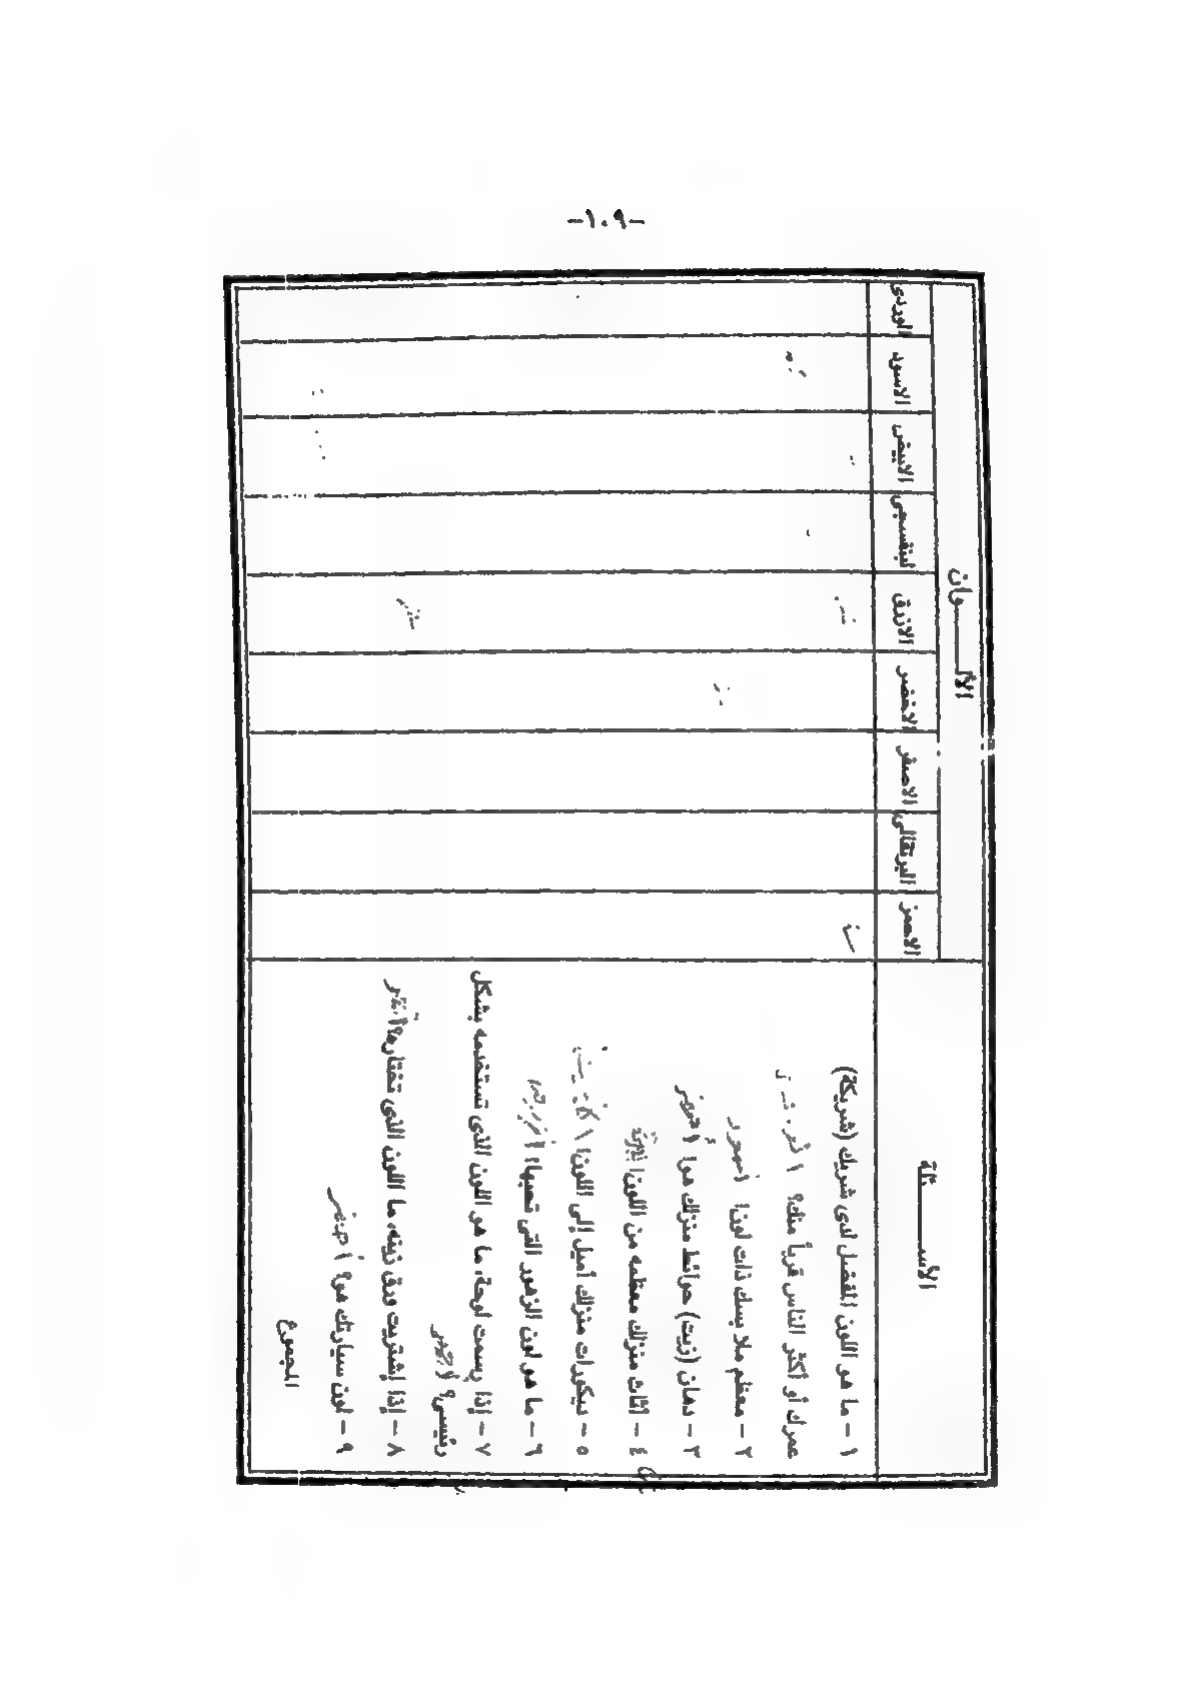 -١٠٩-
الأســـــئلة
الألـــــوان
الاحمر
البرتقالى
الاصفر
الاخضر
الازرق
البنفسجى
الابيض
الاسود
الوردى
١ - ما هو اللون المفضل لدى شريك (شريكة)
عمرك أو أكثر الناس قرباً منك؟
٢ - معظم ملابسك ذات لون؟ أسود
٣ - دهان (زيت) حوائط منزلك هو؟ أخضر
٤ - أثاث منزلك معظمه من اللون؟
٥ - ديكورات منزلك أميل إلى اللون؟
٦ - ما هو لون الزهور التى تحبها؟
٧ - إذا رسمت لوحة، ما هو اللون الذى تستخدمه بشكل
رئيسى؟
٨ - إذا إشتريت ورق زينه، ما اللون الذى تختاره؟
٩ - لون سيارتك هو؟
المجموع